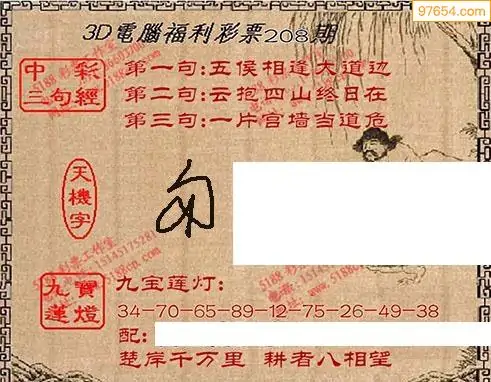 97654.com
3D電腦福利彩票208期
中彩三句經
第一句:五侯相逢大道边
第二句:云抱四山终日在
第三句:一片宫墙当道危
天機字
九寶蓮燈
九宝莲灯:
34-70-65-89-12-75-26-49-38
配:
楚岸千万里 耕者八相望